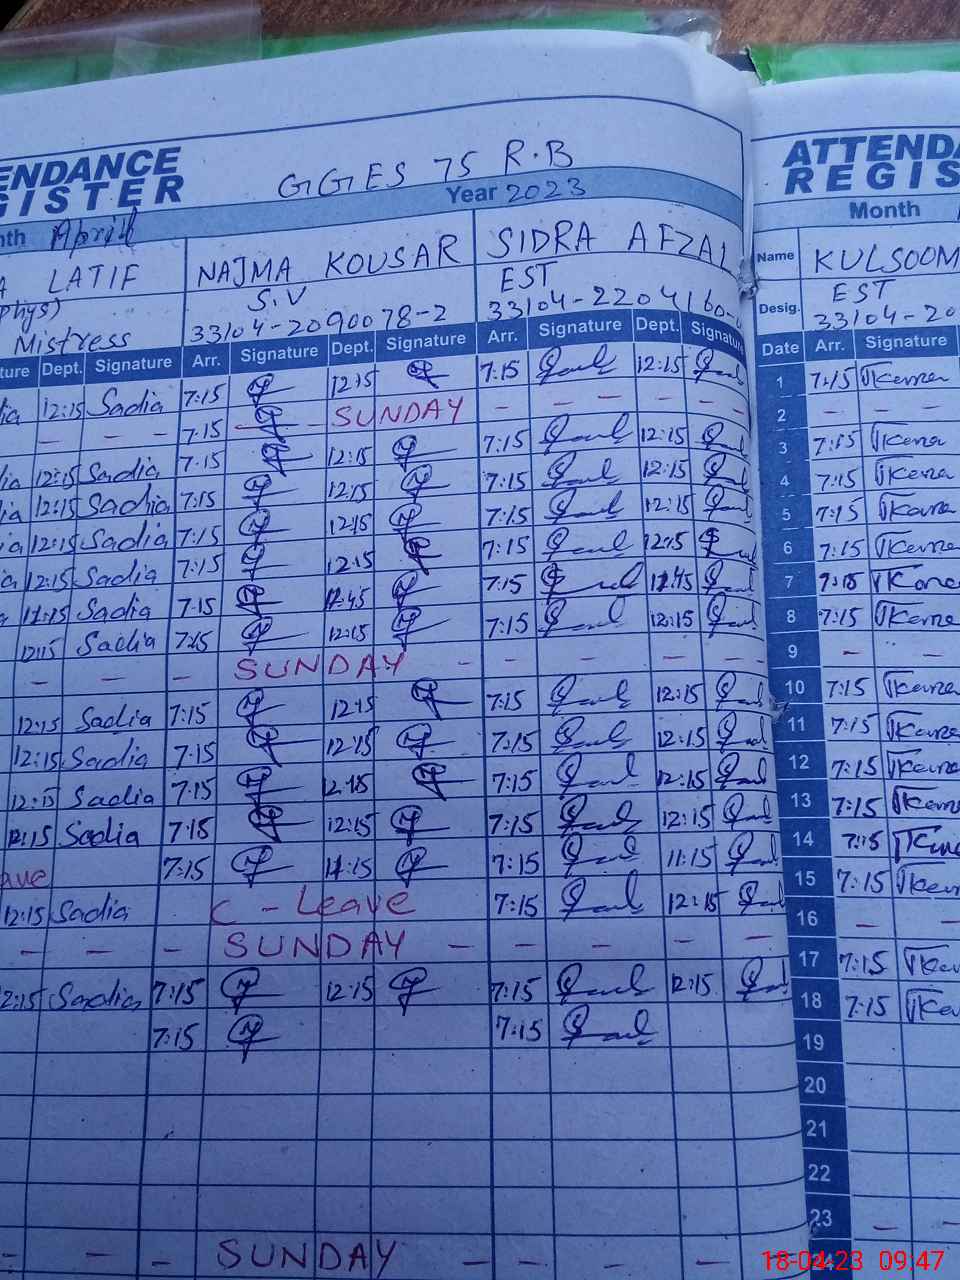 ENDANCE
GISTER
GGES 75 R.B
Year 2023
nth April
A LATIF
NAJMA KOUSAR
SIDRA AFZAL
phys)
S.V
EST
Mistress
33104-2090078-2
33104-2204160-
ture Dept. Signature Arr. Signature Dept. Signature Arr. Signature Dept. Signature
12:15 Sadia 7:15 12:15 7:15 12:15
- - - 7:15 SUNDAY - - - - -
12:15 Sadia 7:15 12:15 7:15 12:15
12:15 Sadia 7:15 12:15 7:15 12:15
12:15 Sadia 7:15 12:15 7:15 12:15
12:15 Sadia 7:15 12:15 7:15 12:15
Sadia 7:15 7:15
12:15 Sadia 7:15 12:15 7:15 12:15
- - - SUNDAY - - - - -
12:15 Sadia 7:15 12:15 7:15 12:15
12:15 Sadia 7:15 12:15 7:15 12:15
12:15 Sadia 7:15 7:15 12:15
12:15 Sadia 7:15 12:15 7:15 12:15
ave 7:15 11:15 7:15 11:15
12:15 Sadia C - Leave 7:15 12:15
- - - SUNDAY - - - - -
2:15 Sadia 7:15 12:15 7:15 12:15
7:15 7:15
- - - SUNDAY - - - -
ATTENDA
REGIS
Month
Name KULSOOM
Desig. EST
33104-20
Date Arr. Signature
1 7:15
2 - - -
3 7:15
4 7:15
5 7:15
6 7:15
7 7:15
8 7:15
9 - -
10 7:15
11 7:15
12 7:15
13 7:15
14 7:15
15 7:15
16 - -
17 7:15
18 7:15
19
20
21
22
23 - -
24
18-04-23 09:47